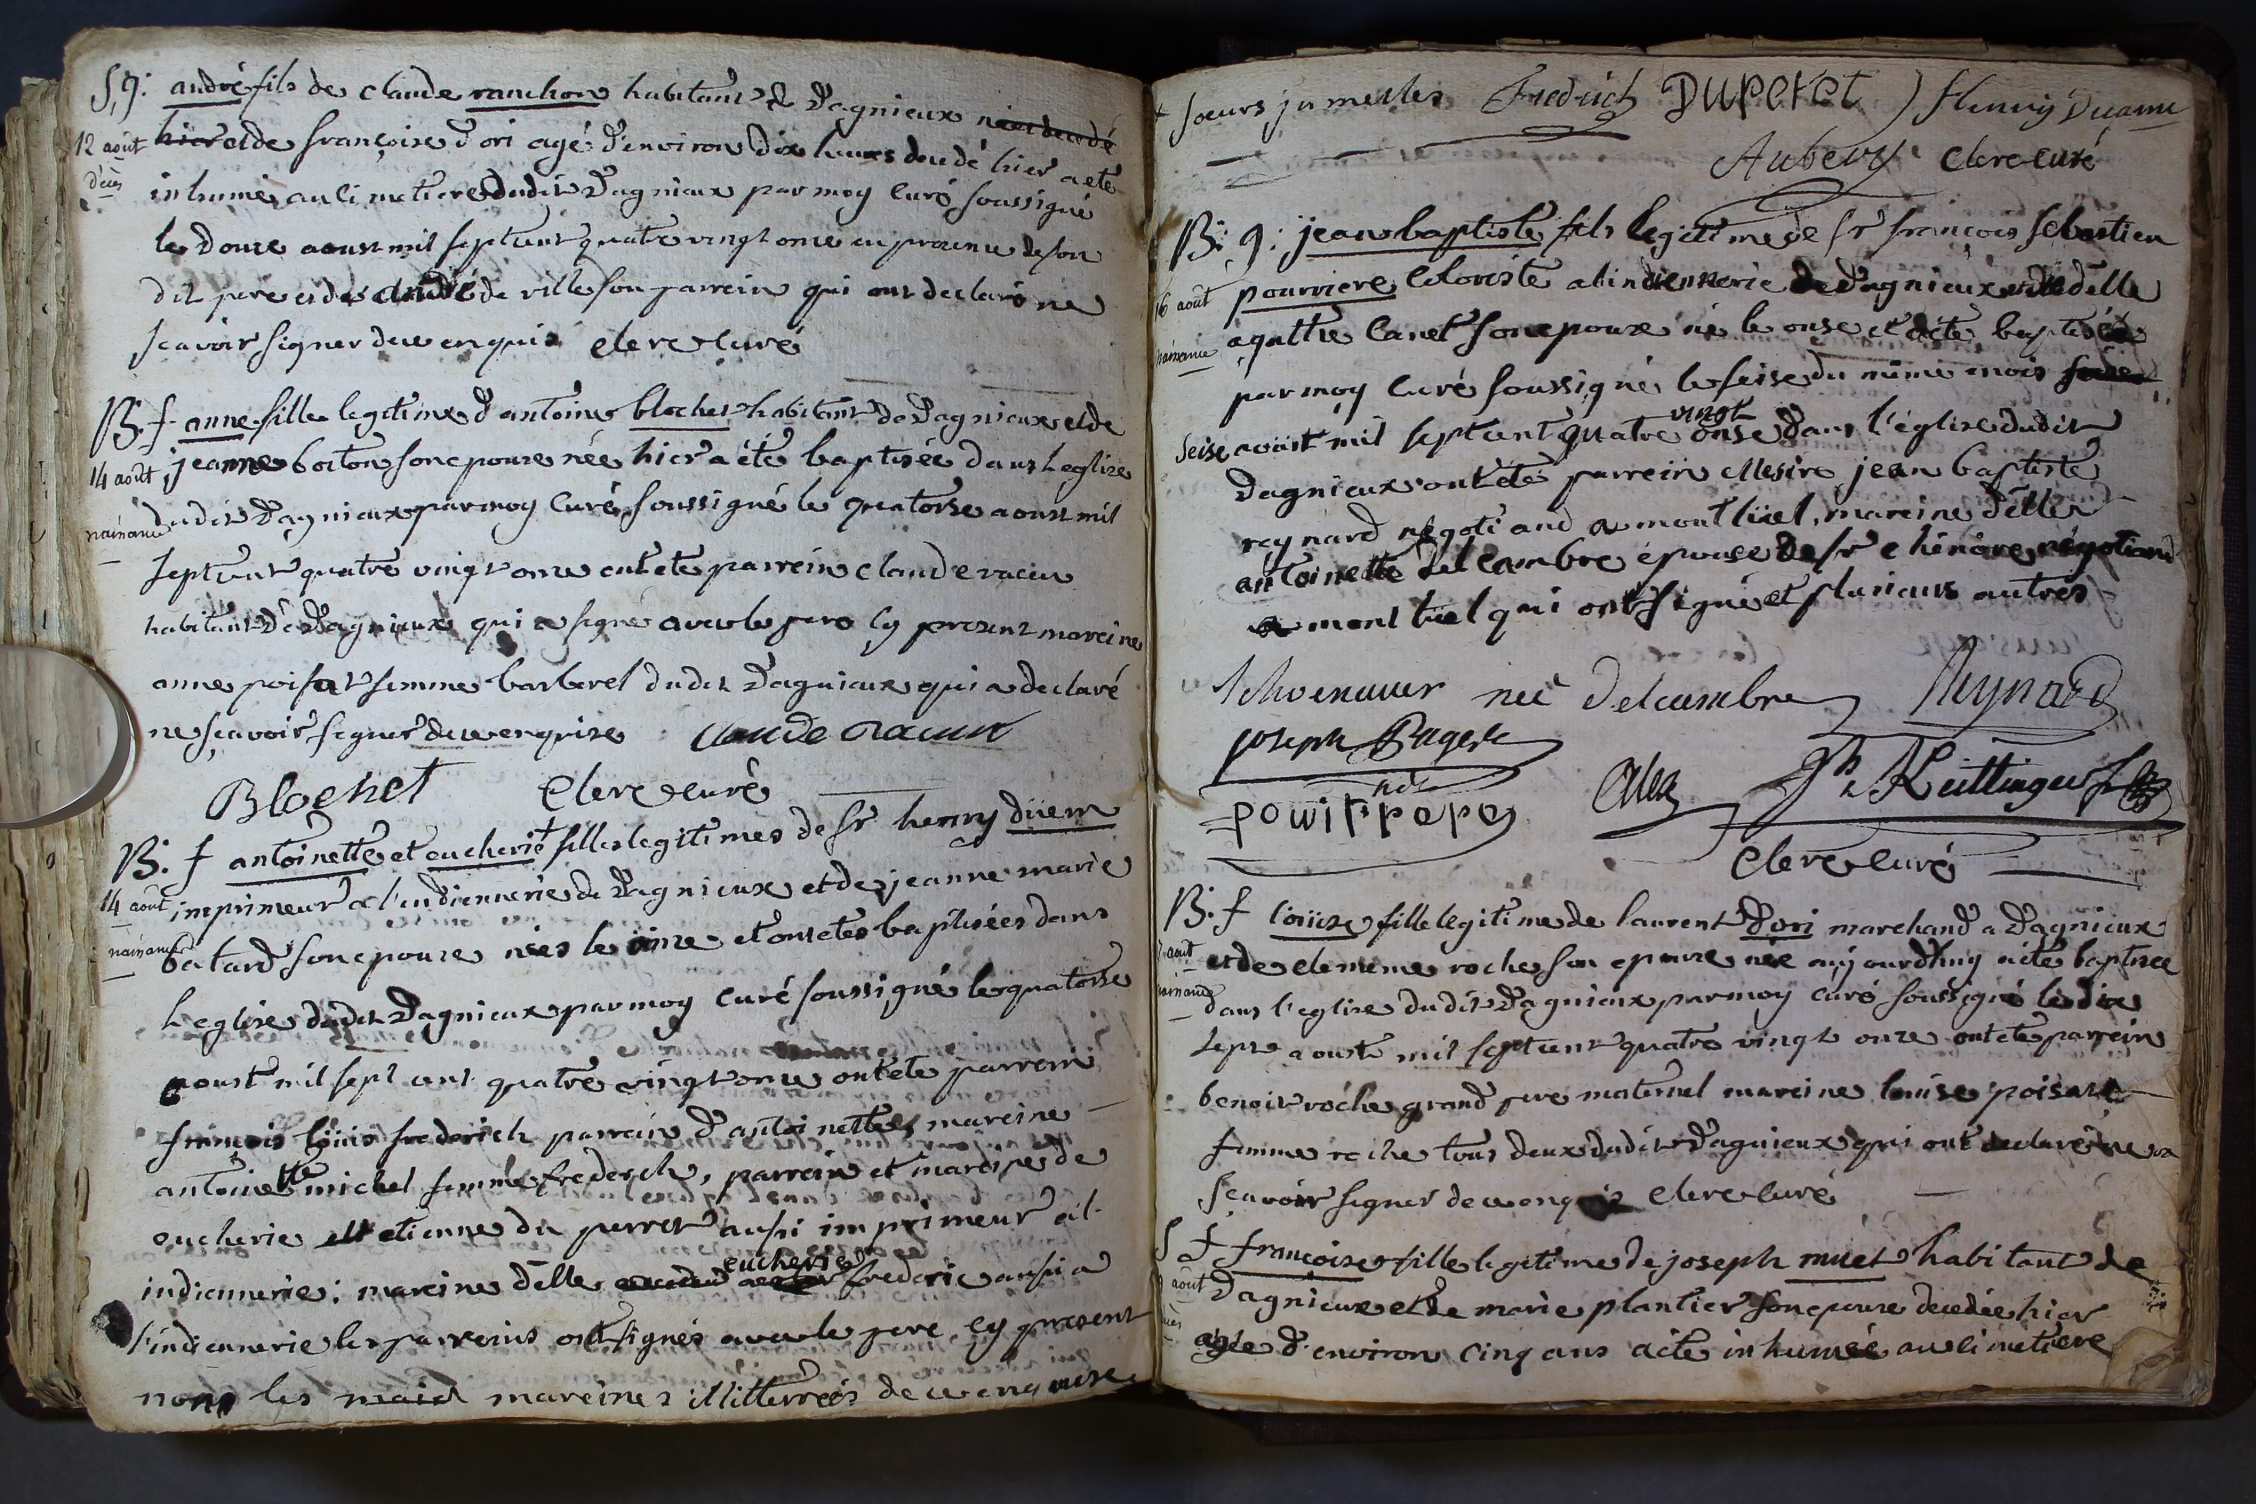 S, g: andré fils de claude ranchon habitant de Dagnieux né et decedé
12 août hier et de françoise Dori agé d'environ dix heures decedé hier a eté
décès inhumé au cimetiere dudit Dagnieux par moy curé soussigné
le douze aoust mil sept cent quatre vingt onze en presence de son
dit pere et de andré de ville son parrein qui ont declaré ne
scavoir signer de ce enquis clerc curé
B. f. anne fille legitime d'antoine blochet habitant de Dagnieux et de
14 août jeanne boiton son epouse née hier a été baptisée dans l'eglise
naissance dudit Dagnieux par moy curé soussigné le quatorse aoust mil
sept cent quatre vingt onze ont ete parrein claude racur
habitant de Dagnieux qui a signé avec le pere cy present mareine
anne poisat femme barberet dudit Dagnieux qui a declaré
ne sçavoir signer de ce enquise claude racur
Blochet clerc curé
B. f antoinette et eucherie + filles legitimes de Sr henry düem
14 août imprimeur a l'indiennerie de Dagnieux et de jeanne marie
naissance batard son epouse nées le onze et ont etes baptisées dans
l'eglise dudit Dagnieux par moy curé soussigné le quatorse
aoust mil sept cent quatre vingt onze ont ete parrein
françois loüis frederich parrein d'antoinette, mareine
antoinette michel femme frederich, parrein et mareine de
eucherie et etienne du perret aussi imprimeur a l'
indiennerie; mareine delle eucherie frederic aussi a
l'indiennerie les parreins ont signés avec le pere cy present
non les maid mareines illitterrées de ce enquise
+ soeurs jumelles Fredrich Duperet Henry Duem
Aubery clerc curé
B: g: jean baptiste fils legitime de Sr françois Sebastien
16 août pourriere coloriste a l'indiennerie de Dagnieux et de delle
naissance agathe canet son epouse né le onse et a été baptisé
par moy curé soussigné le seise du même mois
seise aoust mil sept cent quatre vingt onse dans l'église dudit
Dagnieux ont été parrein Messire jean baptiste
reynard négotiand a montlüel, mareine delle
antoinette delcambre épouse de Sr chénave négotiand
a montlüel qui ont signé et plusieurs autres
née Delcambre Reynard
joseph Pagest
clerc curé
B. f loüise fille legitime de laurent Dori marchand a Dagnieux
août et de clemence roche son epouse née aujourdhuy a été baptisée
naissance dans l'eglise dudit Dagnieux par moy curé soussigné le dix
sept aoust mil sept cent quatre vingt onze ont ete parrein
benoit roche grand pere maternel mareine louise poisat
femme roche tous deux dudit Dagnieux qui ont declaré ne
scavoir signer de ce enquis clerc curé
S f françoise fille legitime de joseph muet habitant de
août Dagnieux et de marie plantier son epouse decedée hier
agée d'environ cinq ans a été inhumée au cimetiere